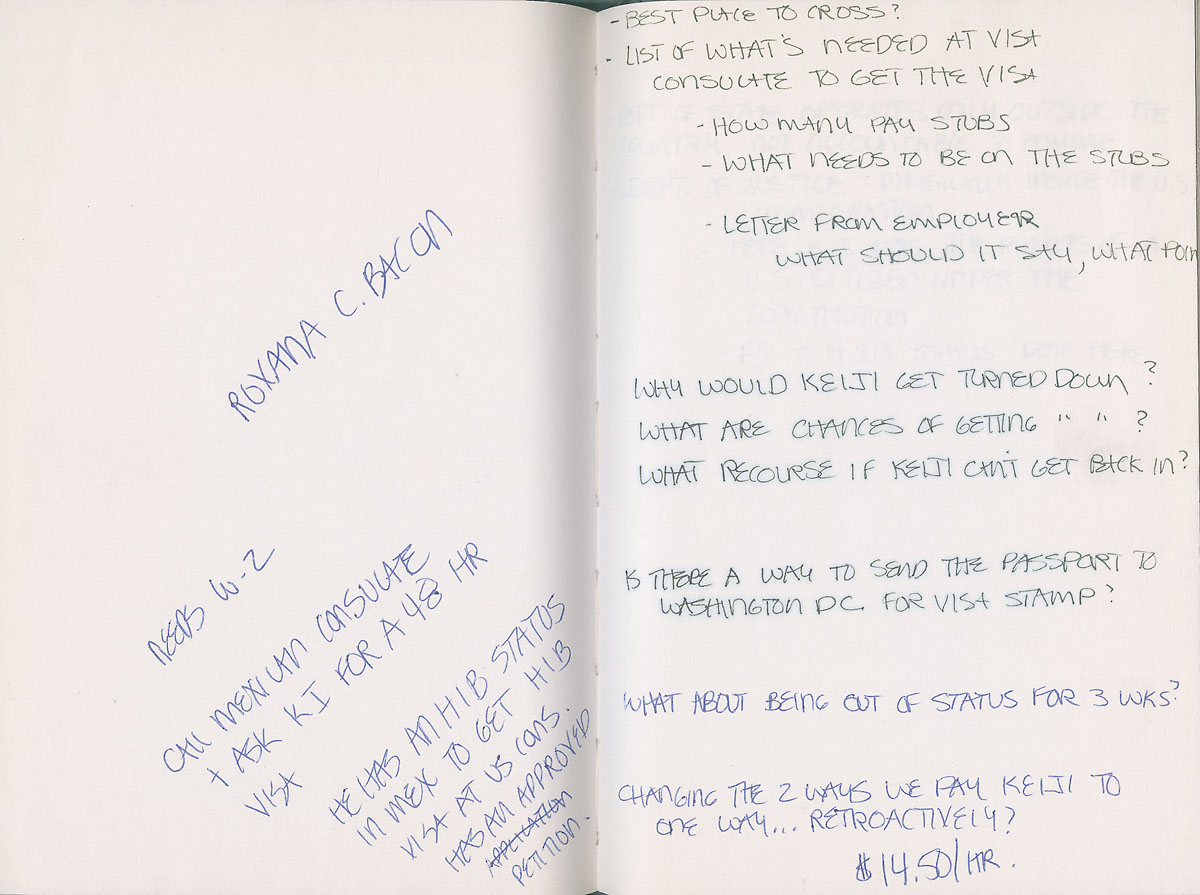 ROXANA C. BACON
NEEDS W-2
CALL MEXICAN CONSULATE
+ ASK K I FOR A 48 HR
VISA
HE HAS AN H1B STATUS
IN MEX TO GET H1B
VISA AT US CONS.
HAS AN APPROVED
APPLICATION
PETITION.
- BEST PLACE TO CROSS?
- LIST OF WHAT'S NEEDED AT VISA
CONSULATE TO GET THE VISA
- HOW MANY PAY STUBS
- WHAT NEEDS TO BE ON THE STUBS
- LETTER FROM EMPLOYER
WHAT SHOULD IT SAY, WHAT
WHY WOULD KEIJI GET TURNED DOWN?
WHAT ARE CHANCES OF GETTING " " ?
WHAT RECOURSE IF KEIJI CAN'T GET BACK IN?
IS THERE A WAY TO SEND THE PASSPORT TO
WASHINGTON D.C. FOR VISA STAMP?
WHAT ABOUT BEING OUT OF STATUS FOR 3 WKS?
CHANGING THE 2 WAYS WE PAY KEIJI TO
ONE WAY... RETROACTIVELY?
$14.50/HR.